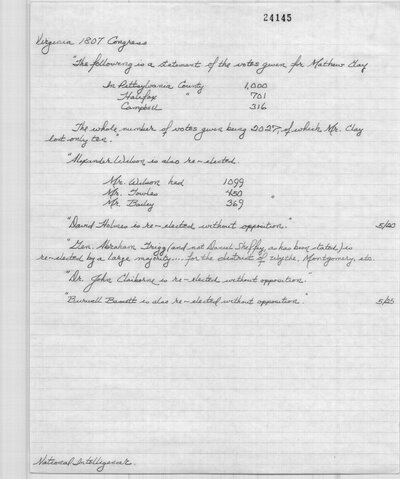 24145
Virginia 1807 Congress
"The following is a statement of the votes given for Mathew Clay
In Pittsylvania County 1,000
Halifax " 701
Campbell 316
The whole number of votes given being 2027, of which Mr. Clay
lost only ten."
"Alexander Wilson is also re-elected.
Mr. Wilson had 1099
Mr. Fowler 450
Mr. Bailey 369 "
"David Holmes is re-elected without opposition." 5/20
"Gen. Abraham Trigg (and not Daniel Sheffey, as has been stated) is
re-elected by a large majority.... for the district of Wythe, Montgomery, etc.
"Dr. John Claiborne is re-elected without opposition."
"Burwell Bassett is also re-elected without opposition." 5/25
National Intelligencer.